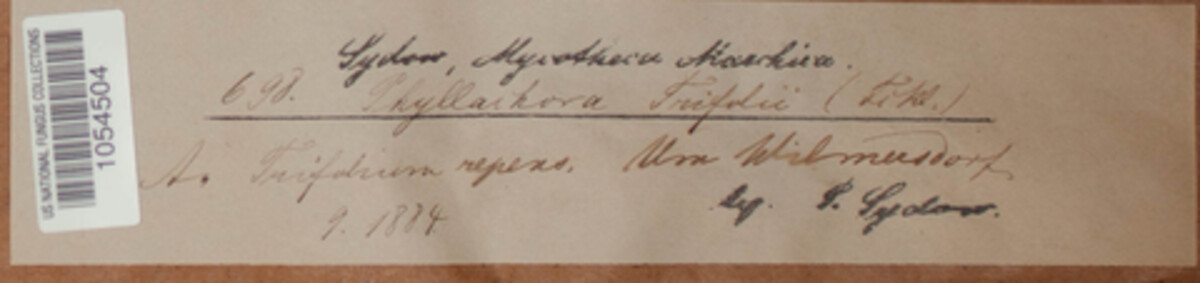 US NATIONAL FUNGUS COLLECTIONS
1054504
Sydow, Mycotheca Marchica.
698. Phyllachora Trifolii (Fckl.)
A. Trifolium repens. Um Wilmersdorf
9. 1884
leg. P. Sydow.